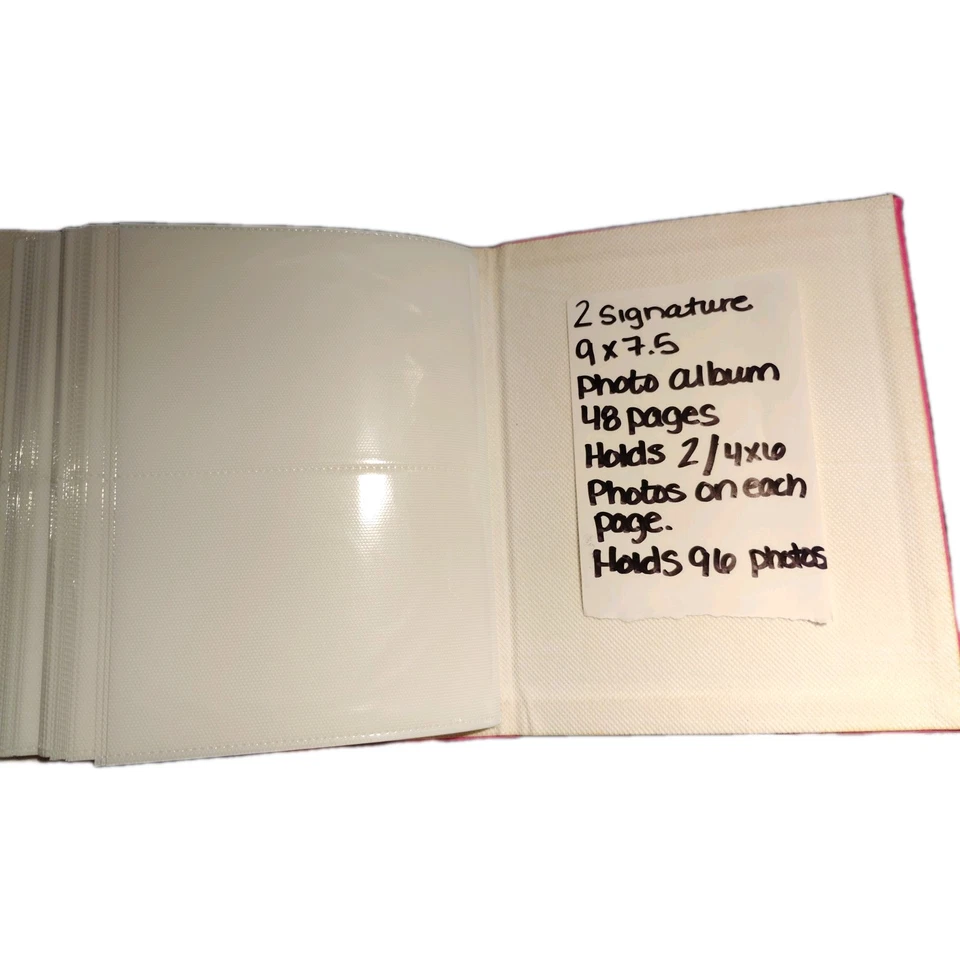 2 Signature
9 x 7.5
Photo album
48 pages
Holds 2/4x6
Photos on each
page.
Holds 96 photos